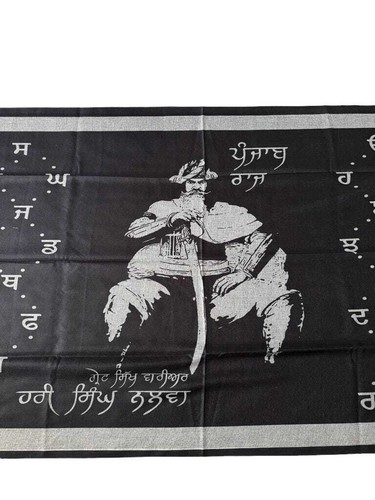 ਸ
ਘ
ਜ
ਡ
ਬ
ਫ
ਪੰਜਾਬ
ਰਾਜ
ੳ
ਹ
ਝ
ਦ
ਗ੍ਰੇਟ ਸਿੱਖ ਵਾਰੀਅਰ
ਹਰੀ ਸਿੰਘ ਨਲਵਾ